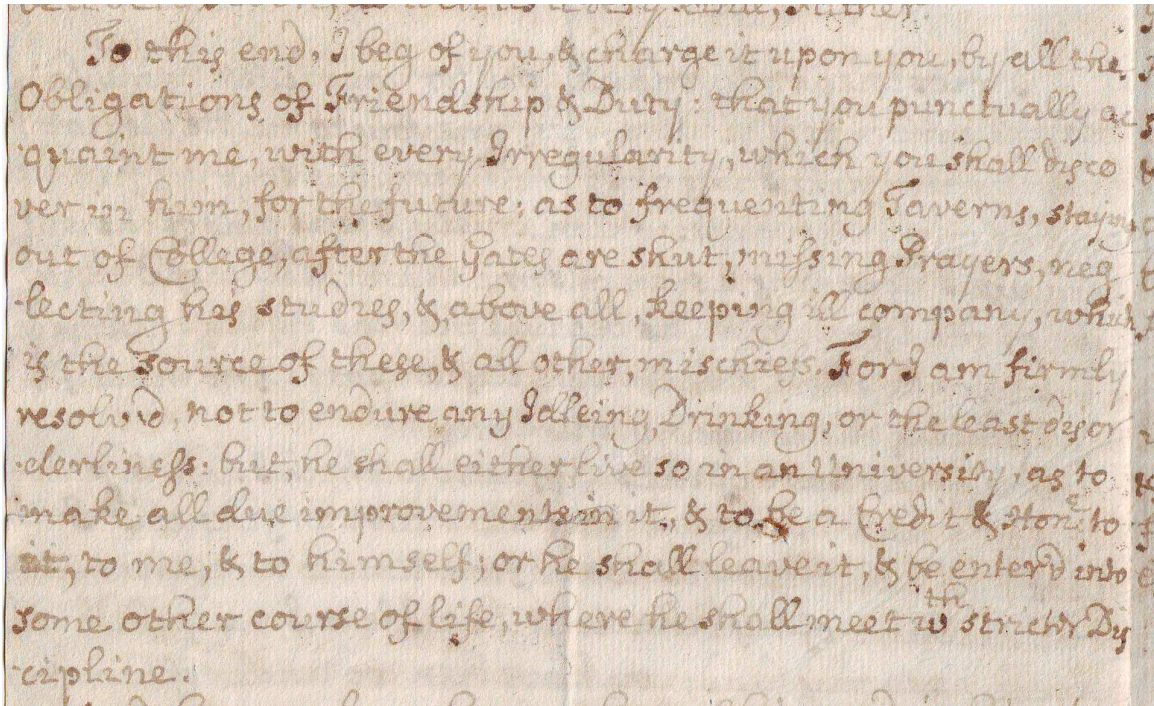 To this end, I beg of you, & charge it upon you, by all the
Obligations of Friendship & Duty: that you punctually ac
quaint me, with every Irregularity, which you shall disco
ver in him, for the future; as to frequenting Taverns, staying
out of College, after the Gates are shut, missing Prayers, neg
lecting his studies, &, above all, keeping ill company, which
is the source of these, & all other, mischiefs. For I am firmly
resolv'd, not to endure any Idleing, Drinking, or the least disor
derliness: but, he shall either live so in an University, as to
make all due improvements in it, & to be a Credit & Honr. to
it, to me, & to himself; or he shall leave it, & be enter'd into
some other course of life, where he shall meet wth stricter Dis
cipline.